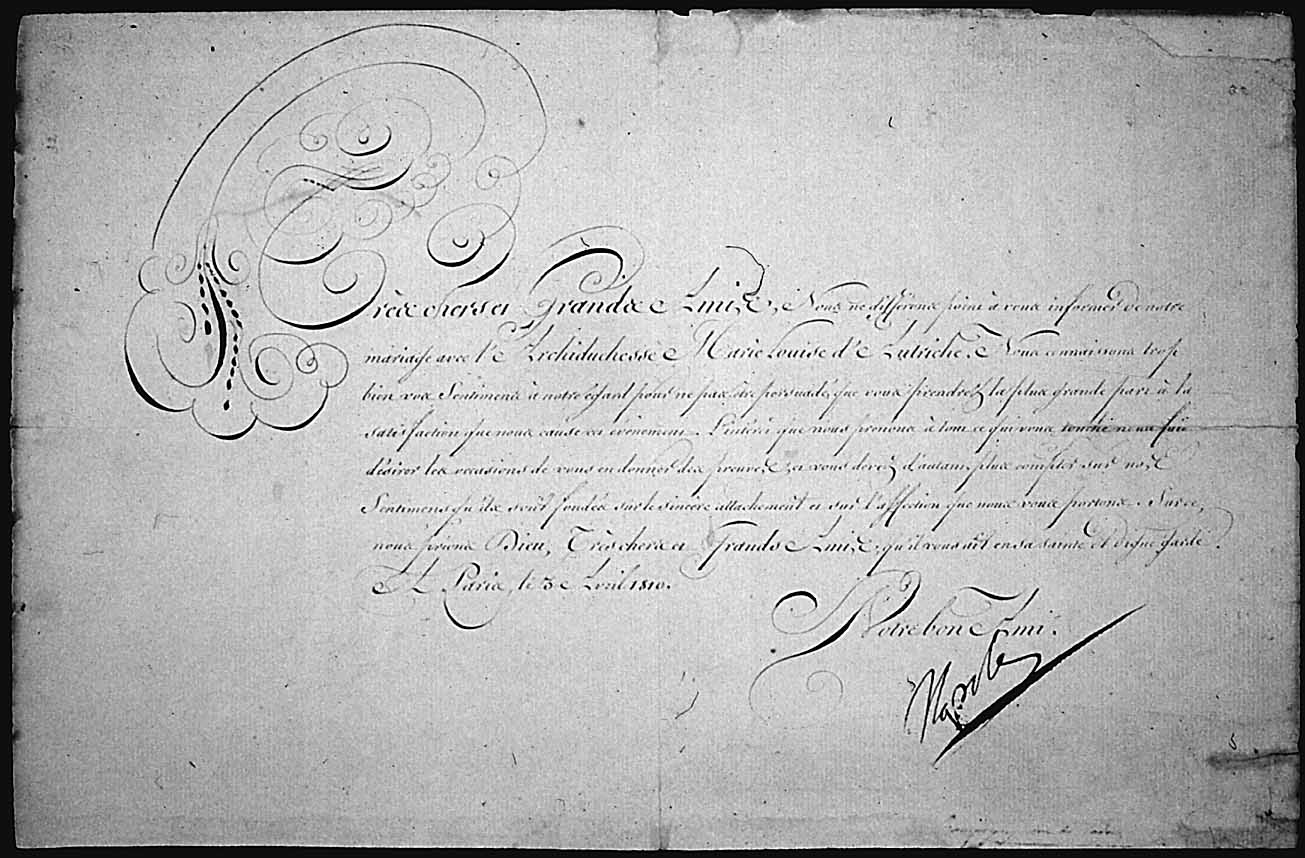 Très chers et Grands Amis, Nous ne différons point à vous informer de notre
mariage avec l'Archiduchesse Marie Louise d'Autriche. Nous connaissons trop
bien vos Sentimens à notre égard pour ne pas être persuadé, que vous prendrez la plus grande part à la
satisfaction que nous cause cet évènement. L'intérêt que nous prenons à tout ce qui vous touche nous fait
désirer les occasions de vous en donner des preuves, et vous devez d'autant plus compter sur nos
Sentimens qu'ils sont fondés sur le sincère attachement et sur l'affection que nous vous portons. Sur ce,
nous prions Dieu, Très chers et Grands Amis, qu'il vous ait en sa sainte et digne garde.
A Paris, le 3 Avril 1810.
Votre bon Ami.
Napole